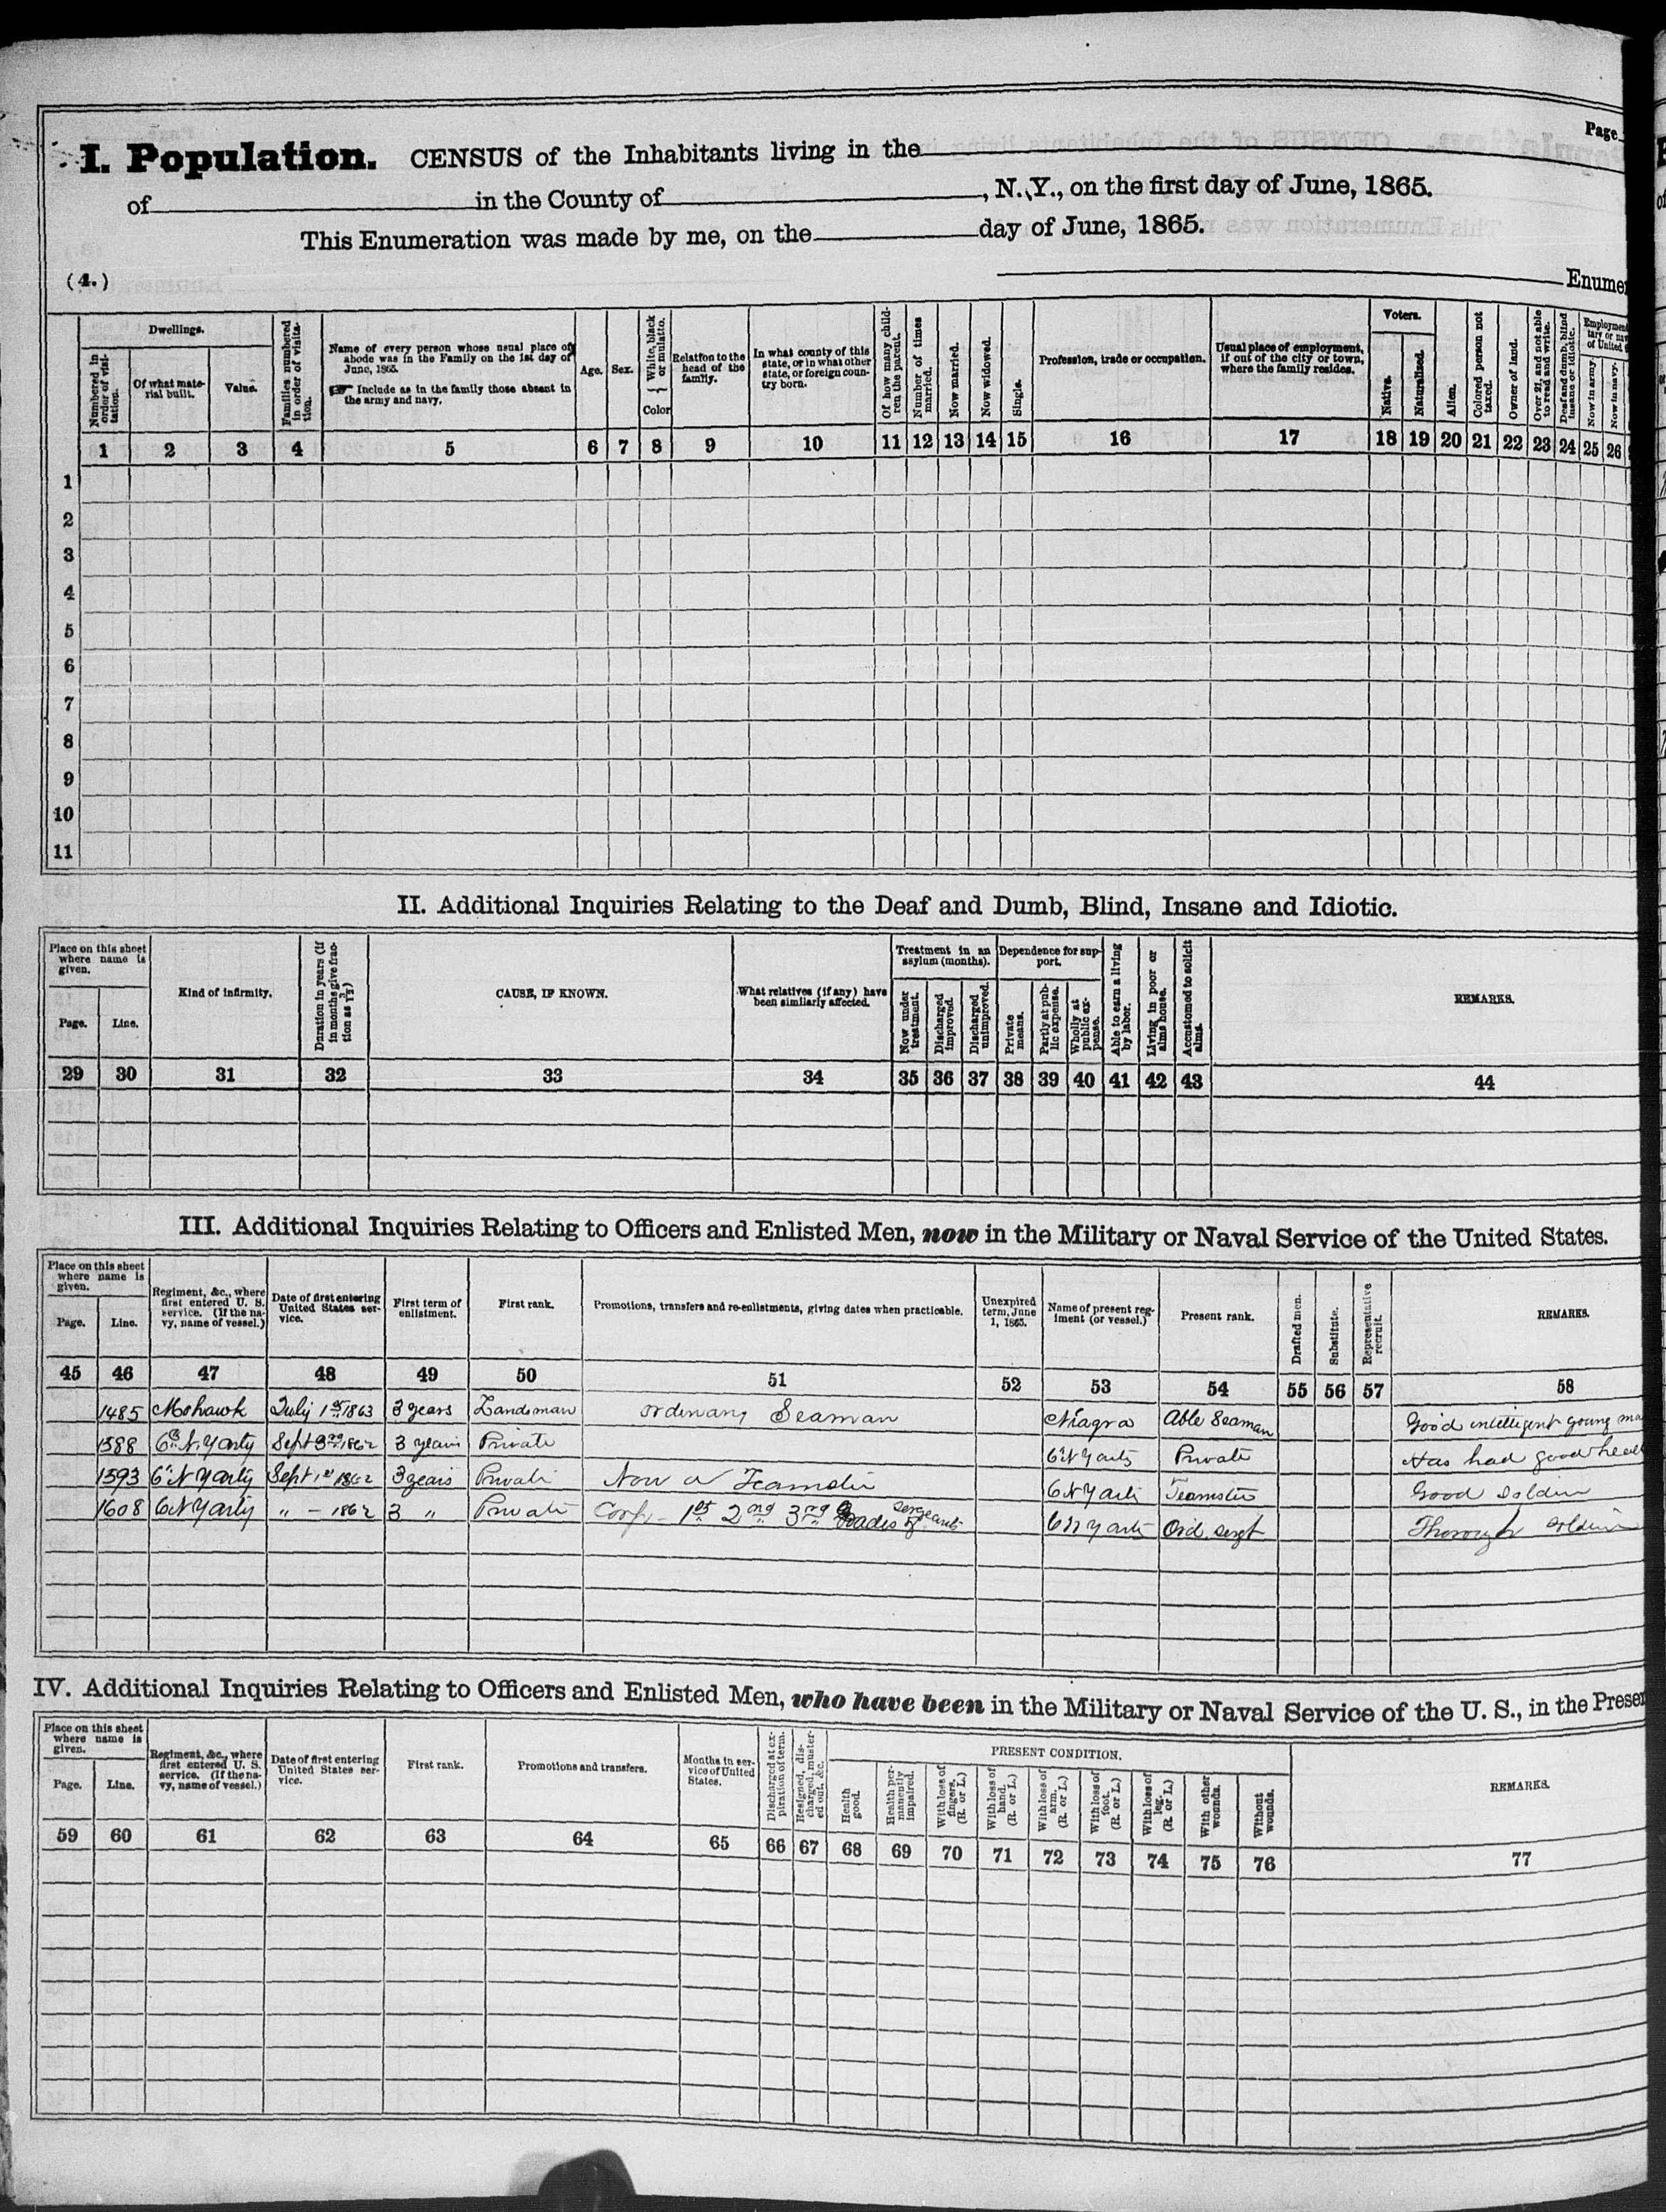 Page
I. Population. CENSUS of the Inhabitants living in the
of in the County of , N. Y., on the first day of June, 1865.
This Enumeration was made by me, on the day of June, 1865.
(4.) Enume
Dwellings. Voters. Employmen
tary or nav
of United
Numbered in order of visitation.
Of what mate-
rial built.
Value.
Families numbered in order of visita-
tion.
Name of every person whose usual place of
abode was in the Family on the 1st day of
June, 1865.
☞ Include as in the family those absent in
the army and navy.
Age. Sex.
White, black
or mulatto.
Color
Relation to the
head of the
family.
In what county of this
state, or in what other
state, or foreign coun-
try born.
Of how many child-
ren the parent.
Number of times
married.
Now married.
Now widowed.
Single.
Profession, trade or occupation.
Usual place of employment,
if out of the city or town,
where the family resides.
Native.
Naturalized.
Alien.
Colored person not
taxed.
Owner of land.
Over 21, and not able
to read and write.
Deaf and dumb, blind
insane or idiotic.
Now in army
Now in navy.
1 2 3 4 5 6 7 8 9 10 11 12 13 14 15 16 17 18 19 20 21 22 23 24 25 26
1
2
3
4
5
6
7
8
9
10
11
II. Additional Inquiries Relating to the Deaf and Dumb, Blind, Insane and Idiotic.
Place on this sheet
where name is
given.
Page. Line.
Kind of infirmity.
Duration in years (if
in months give frac-
tion as 3/12)
CAUSE, IF KNOWN.
What relatives (if any) have
been similarly affected.
Treatment in an
asylum (months).
Now under
treatment.
Discharged
improved.
Discharged
unimproved.
Dependence for sup-
port.
Private
means.
Partly at pub-
lic expense.
Wholly at
public ex-
pense.
Able to earn a living
by labor.
Living in poor or
alms house.
Accustomed to solicit
alms.
REMARKS.
29 30 31 32 33 34 35 36 37 38 39 40 41 42 43 44
III. Additional Inquiries Relating to Officers and Enlisted Men, now in the Military or Naval Service of the United States.
Place on this sheet
where name is
given.
Page. Line.
Regiment, &c., where
first entered U. S.
service. (If the na-
vy, name of vessel.)
Date of first entering
United States ser-
vice.
First term of
enlistment.
First rank.
Promotions, transfers and re-enlistments, giving dates when practicable.
Unexpired
term, June
1, 1865.
Name of present reg-
iment (or vessel.)
Present rank.
Drafted men.
Substitute.
Representative
recruit.
REMARKS.
45 46 47 48 49 50 51 52 53 54 55 56 57 58
1485 Mohawk July 1st 1863 3 years Landsman ordinary Seaman Niagra Able Seaman Good intelligent young ma
1388 6th N. Y arty Sept 3rd 1862 3 years Private 6 N Y arty Private Has had good heal
1393 6th N Y arty Sept 1st 1862 3 years Private Now a Teamster 6 N Y arty Teamster Good soldier
1608 6 N Y arty " – 1862 3 " Private Corp, – 1st 2nd 3rd Grades of Sergeants 6 N Y arty Ord. Sergt Thorough soldier
IV. Additional Inquiries Relating to Officers and Enlisted Men, who have been in the Military or Naval Service of the U. S., in the Presen
Place on this sheet
where name is
given.
Page. Line.
Regiment, &c., where
first entered U. S.
service. (If the na-
vy, name of vessel.)
Date of first entering
United States ser-
vice.
First rank.
Promotions and transfers.
Months in ser-
vice of United
States.
Discharged at ex-
piration of term.
Resigned, dis-
charged, muster-
ed out, &c.
PRESENT CONDITION.
Health
good.
Health per-
manently
impaired.
With loss of
fingers.
(R. or L.)
With loss of
hand.
(R. or L.)
With loss of
arm.
(R. or L.)
With loss of
foot.
(R. or L.)
With loss of
leg.
(R. or L.)
With other
wounds.
Without
wounds.
REMARKS.
59 60 61 62 63 64 65 66 67 68 69 70 71 72 73 74 75 76 77